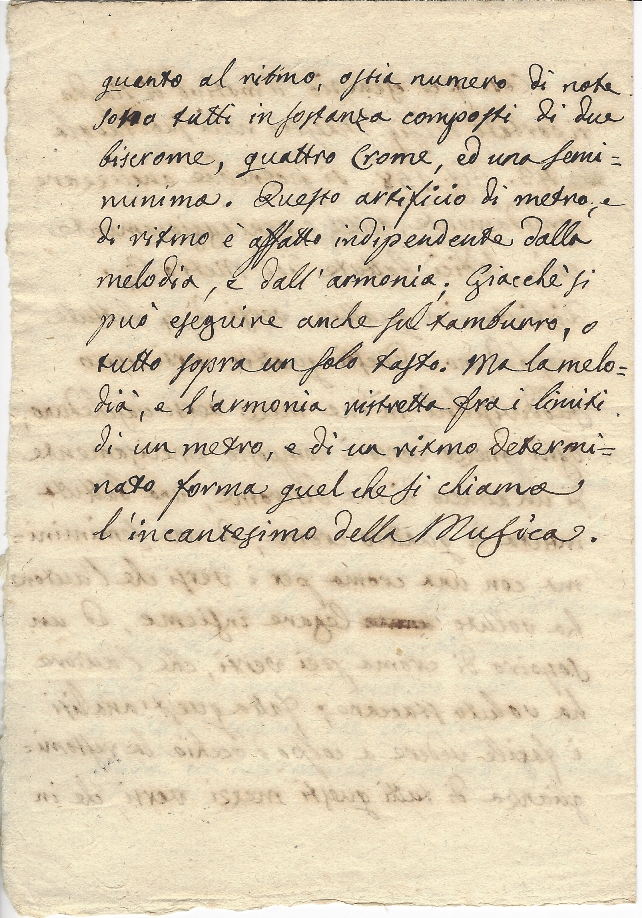 quanto al ritmo, ossia numero di note
sono tutti in sostanza composti di due
biscrome, quattro Crome, ed una semi=
minima. Questo artificio di metro, e
di ritmo è affatto indipendente dalla
melodia, e dall'armonia; Giacchè si
può eseguire anche sul tamburro, o
tutto sopra un solo tasto. Ma la melo=
dia, e l'armonia ristretta fra i limiti
di un metro, e di un ritmo determi=
nato forma quel che si chiama
l'incantesimo della Musica.